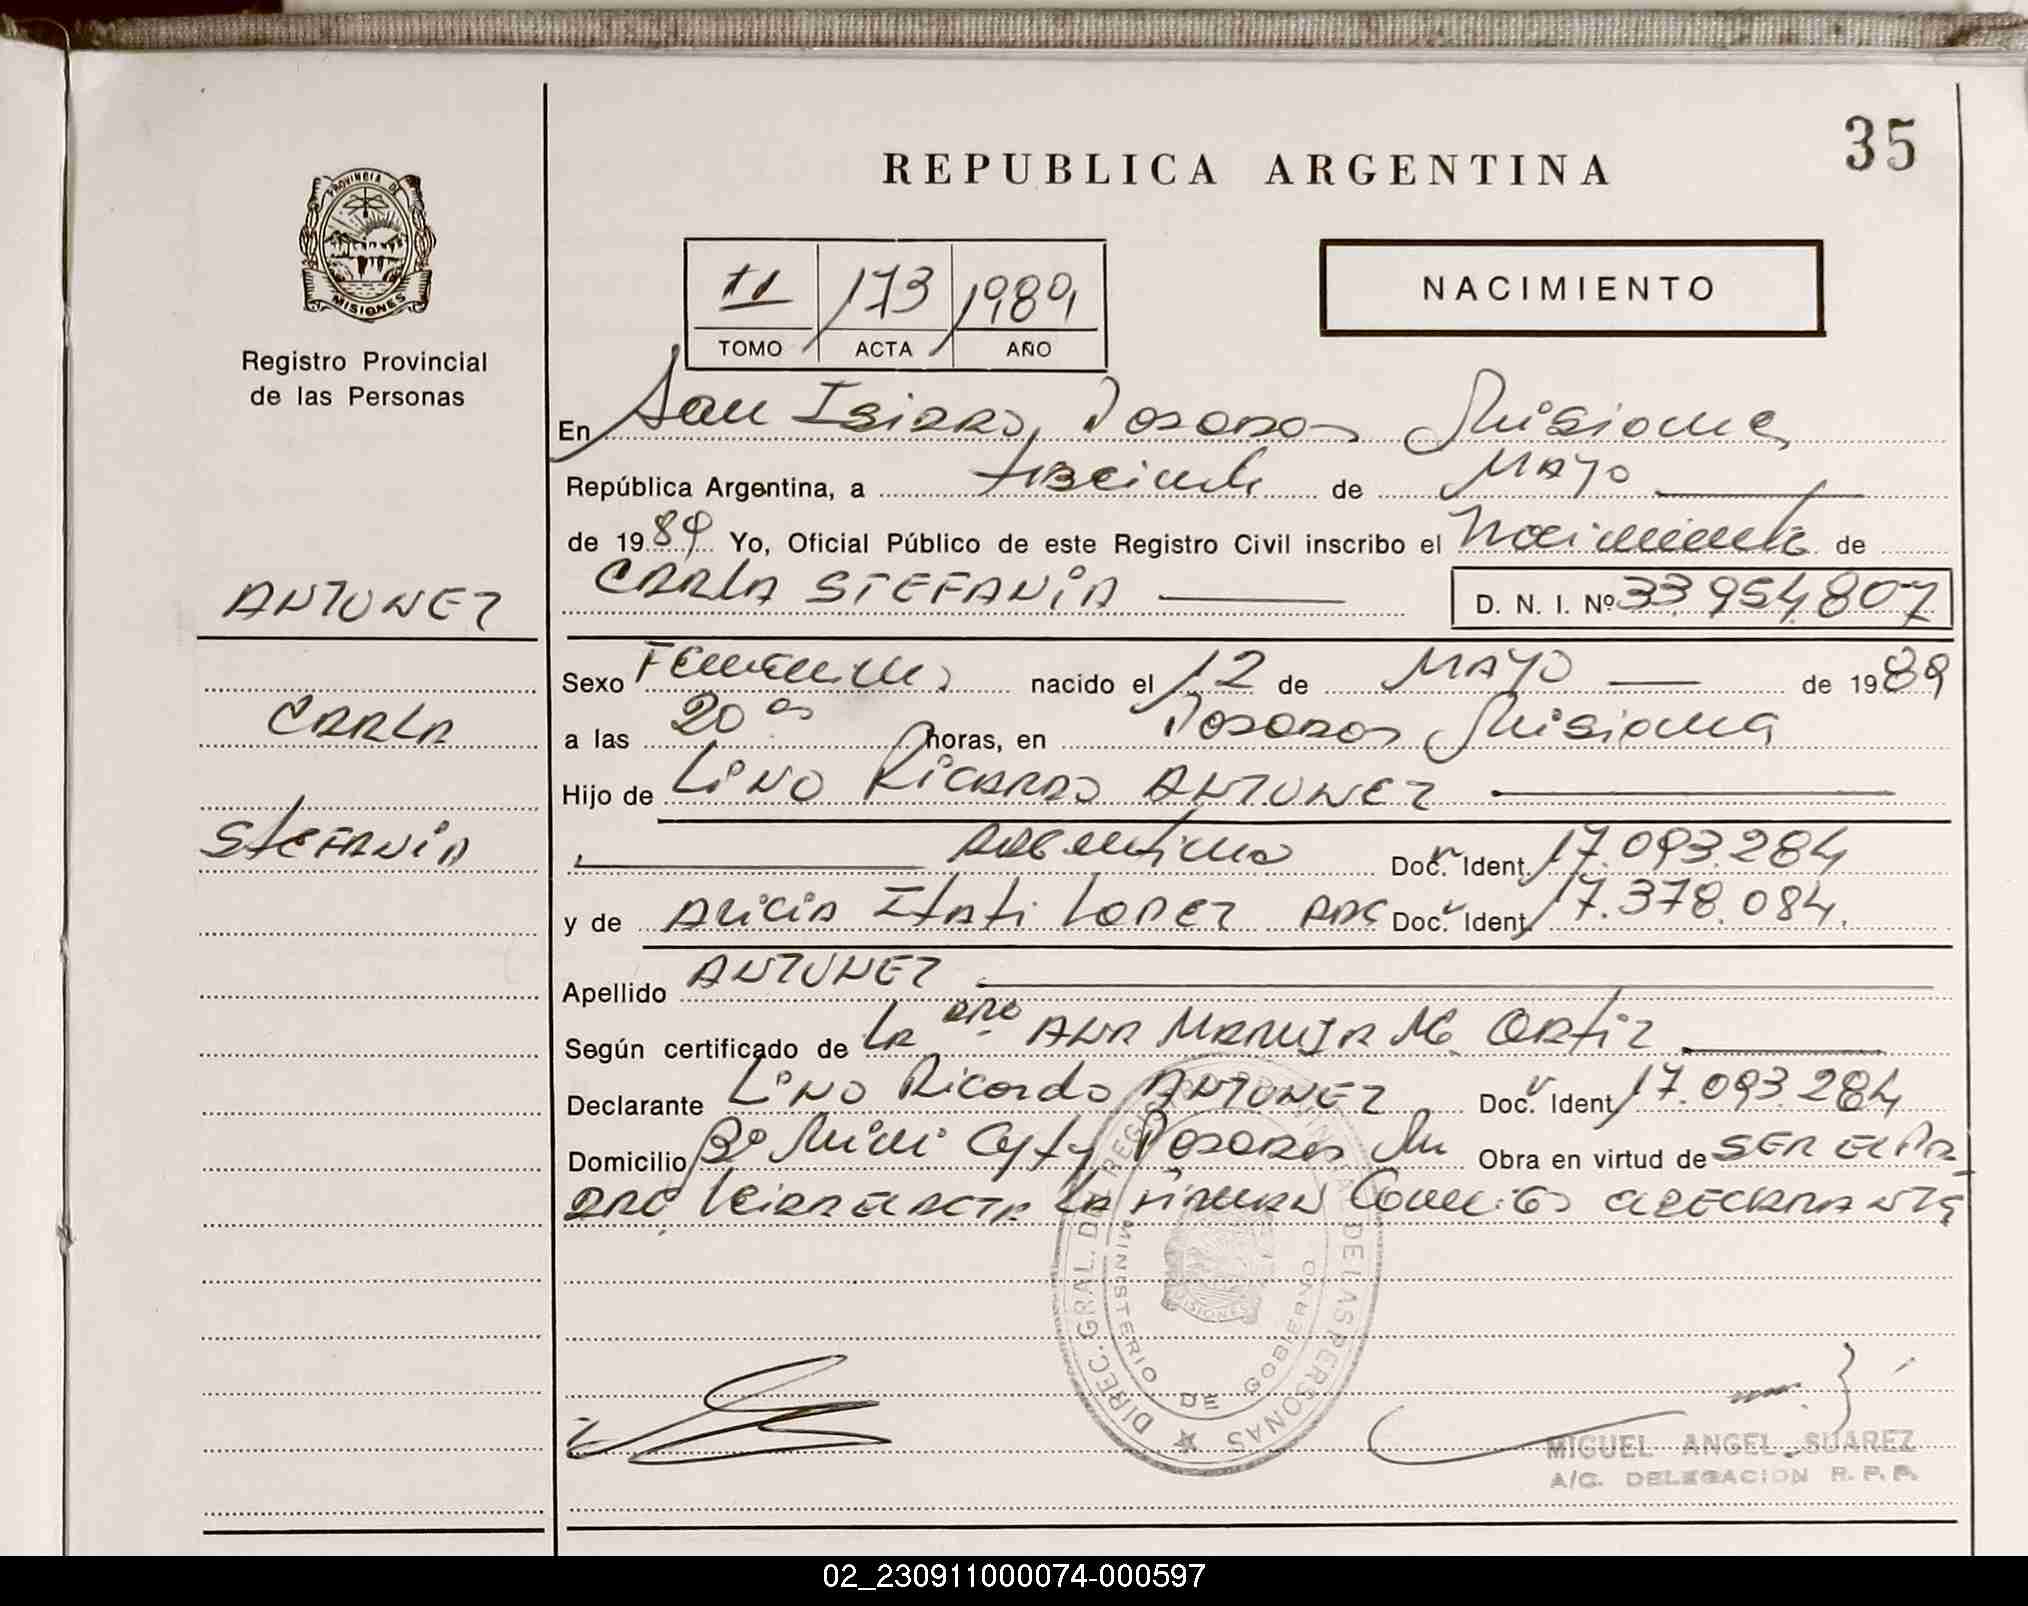 35
REPUBLICA ARGENTINA
PROVINCIA DE
MISIONES
Registro Provincial
de las Personas
NACIMIENTO
II 173 1989
TOMO ACTA AÑO
En San Isidro, Posadas Misiones
República Argentina, a de MAYO
de 1989 Yo, Oficial Público de este Registro Civil inscribo el Nacimiento de
CARLA STEFANIA D. N. I. Nº 33.954.807
ANTUNEZ
CARLA
STEFANIA
Sexo Femenino nacido el 12 de MAYO de 1989
a las 20 horas, en Posadas Misiones
Hijo de LiNO RicARDO ANTUNEZ
Argentino Doc. Ident 17.093.284
y de Alicia Itati Lopez ARG Doc. Ident 17.378.084.
Apellido ANTUNEZ
Según certificado de La ANA M. Ortiz
Declarante LiNO Ricardo ANTUNEZ Doc. Ident 17.093.284
Domicilio Bº Mini City Posadas Mn Obra en virtud de SER EL PA
DRE Leida el acta la firman conmigo el declarante
DIREC. GRAL. DEL REGISTRO PROVINCIAL DE LAS PERSONAS
MINISTERIO DE GOBIERNO
MISIONES
MIGUEL ANGEL SUAREZ
A/C. DELEGACION R. P. P.
02_230911000074-000597